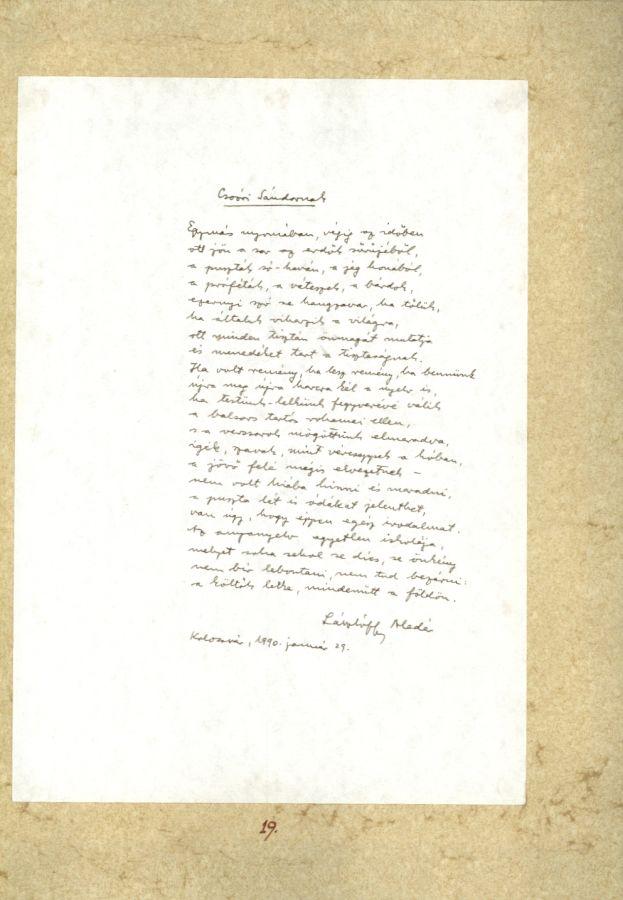 Csoóri Sándornak
Egymás nyomában, végig az időben
ott jön a sor az erdők sűrűjéből,
a puszták só-haván, a jég honából,
a próféták, a véteszek, a bárdok,
ezernyi szó se hangzavar, ha tőlük,
ha általuk viharzik a világra,
ott minden tisztán önmagát mutatja
és menedéket tart a tisztaságnak.
Ha volt remény, ha lesz remény, ha bennünk
újra meg újra harcra kél a nyelv is,
ha testünk-lelkünk fegyverévé válik
a balsors tartós rohamai ellen,
s a verssorok mögöttünk elmaradva,
igék, szavak, mint vércseppek a hóban,
a jövő felé mégis elvezetnek –
nem volt hiába hinni és maradni,
a puszta lét is ódákat jelenthet,
van úgy, hogy éppen egész irodalmat.
Az anyanyelv egyetlen iskolája,
melyet soha sehol se dics, se önkény
nem bír lebontani, nem tud bezárni:
a költők lelke, mindenütt a földön.
Lászlóffy Aladár
Kolozsvár, 1990. január 29.
19.